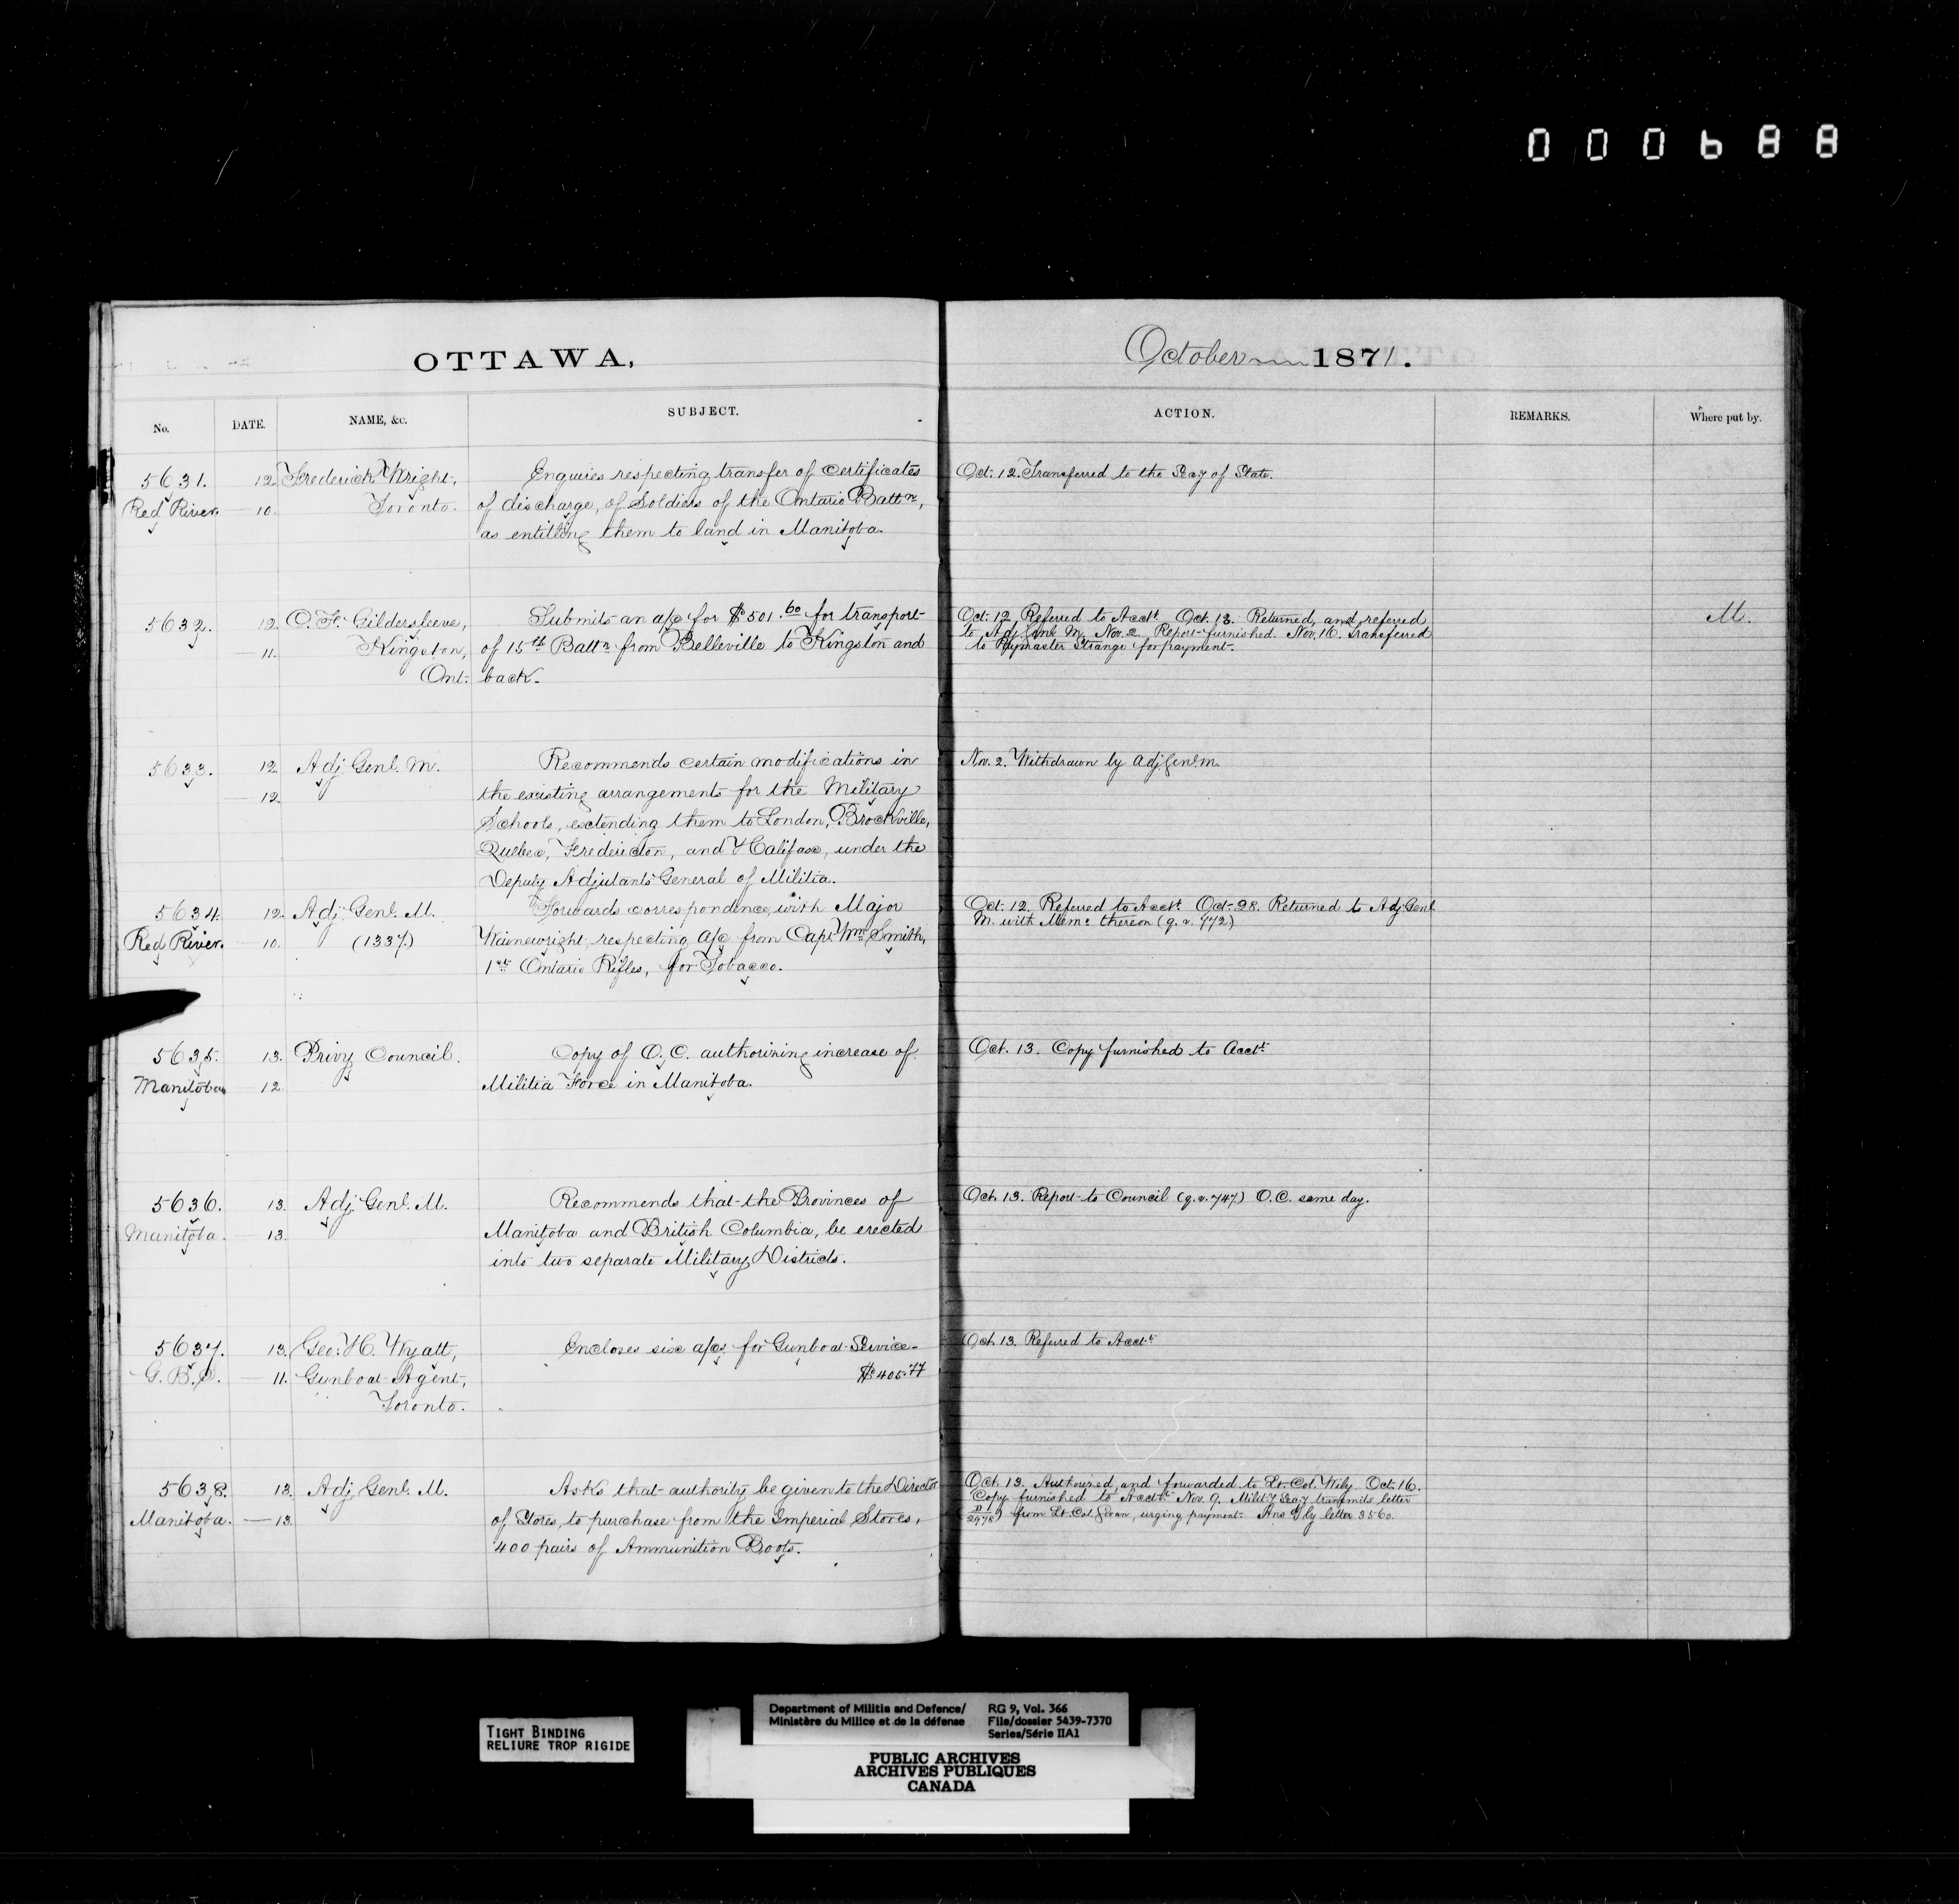 000688
OTTAWA,
October 1871.
No. DATE. NAME, &c. SUBJECT. ACTION. REMARKS. Where put by.
5631. 12. Frederick Wright, Enquires respecting transfer of certificates Oct. 12. Transferred to the Secy of State.
Red River. 10. Toronto. of discharge, of Soldiers of the Ontario Battn,
as entitling them to land in Manitoba.
5632. 12. C. F. Gildersleeve, Submits an a/c for $501.60 for transport- Oct. 12. Referred to Acctt. Oct. 13. Returned, and referred M.
11. Kingston, of 15th Battn from Belleville to Kingston and to Adj Genl M. Nov. 2. Report furnished. Nov. 16. Transferred
Ont. back. to Paymaster Strange for payment.
5633. 12. Adj. Genl. M. Recommends certain modifications in Nov. 2. Withdrawn by Adj. Genl. M.
12. the existing arrangements for the Military
Schools, extending them to London, Brockville,
Quebec, Fredericton, and Halifax, under the
Deputy Adjutants General of Militia.
5634. 12. Adj. Genl. M. Forwards correspondence, with Major Oct. 12. Referred to Acctt. Oct. 28. Returned to Adj. Genl
Red River. 10. (1337) Wainewright, respecting a/c from Capt Wm Smith, M. with Memo thereon (q.v. 772)
1st Ontario Rifles, for Tobacco.
5635. 13. Privy Council. Copy of O.C. authorizing increase of Oct. 13. Copy furnished to Acctt.
Manitoba 12. Militia Force in Manitoba.
5636. 13. Adj. Genl. M. Recommends that the Provinces of Oct. 13. Report to Council (q.v. 747) O.C. same day.
Manitoba. 13. Manitoba and British Columbia, be erected
into two separate Military Districts.
5637. 13. Geo: H. Wyatt, Encloses six a/cs for Gunboat Service- Oct. 13. Referred to Acctt.
G. B. S. 11. Gunboat Agent, $405.77
Toronto.
5638. 13. Adj. Genl. M. Asks that authority be given to the Director Oct. 13. Authorized, and forwarded to Lt. Col. Wily. Oct. 16.
Manitoba. 13. of Stores, to purchase from the Imperial Stores, Copy furnished to Acctt. Nov. 9. Mility Secy transmits letter
400 pairs of Ammunition Boots. from Lt. Col. urging payment. Ans by letter 3560.
TIGHT BINDING
RELIURE TROP RIGIDE
Department of Militia and Defence/ RG 9, Vol. 366
Ministère du Milice et de la défense File/dossier 5439-7370
Series/Série IIA1
PUBLIC ARCHIVES
ARCHIVES PUBLIQUES
CANADA